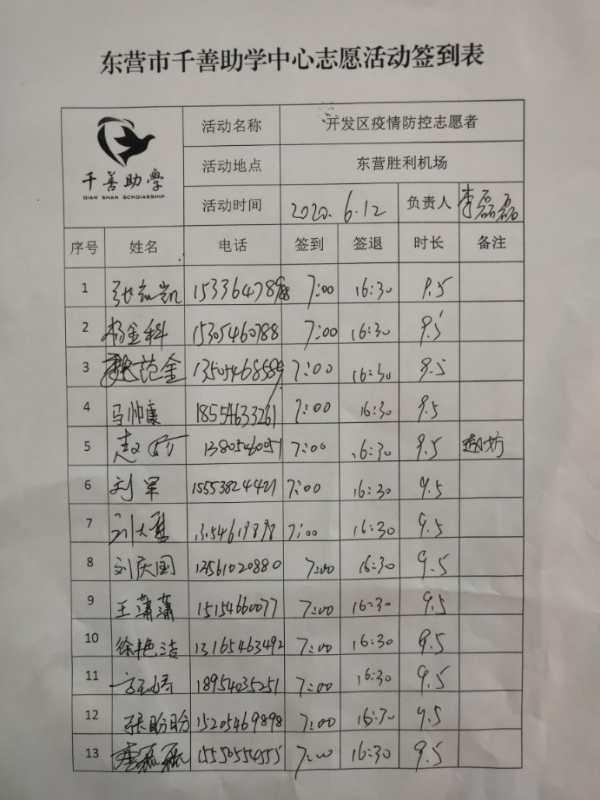 东营市千善助学中心志愿活动签到表
千善助学
QIAN SHAN SCHOLARSHIP
活动名称 开发区疫情防控志愿者
活动地点 东营胜利机场
活动时间 2022.6.12 负责人 李磊磊
序号 姓名 电话 签到 签退 时长 备注
1 7:00 16:30 9.5
2 杨金科 15305460788 7:00 16:30 9.5
3 范金 7:00 16:30 9.5
4 马帅康 18554633261 7:00 16:30 9.5
5 7:00 16:30 9.5
6 刘军 15553824421 7:00 16:30 9.5
7 刘大 7:00 16:30 9.5
8 刘庆国 13561020880 7:00 16:30 9.5
9 王潇潇 15154660077 7:00 16:30 9.5
10 徐艳洁 13165463492 7:00 16:30 9.5
11 18954035251 7:00 16:30 9.5
12 张盼盼 15205469898 7:00 16:30 9.5
13 15550554555 7:00 16:30 9.5